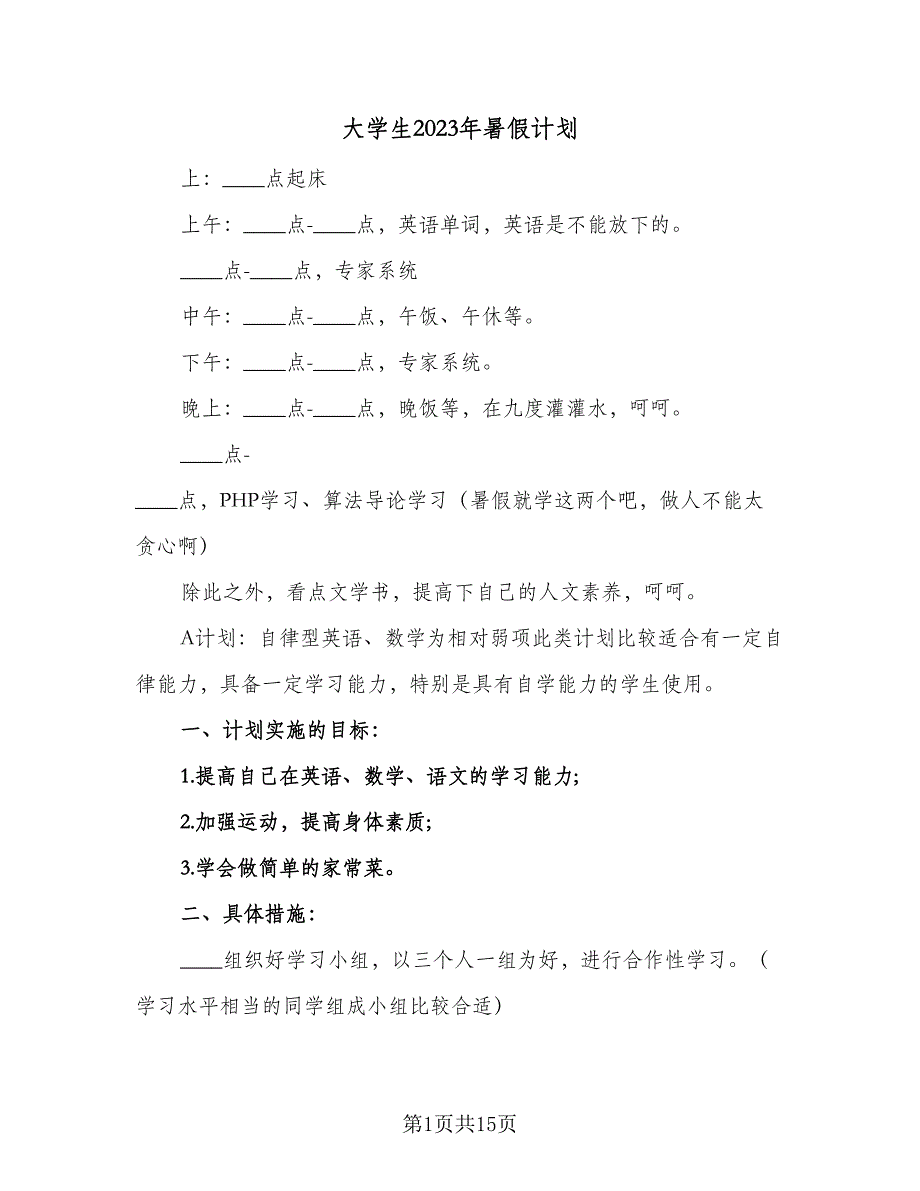 大学生2023年暑假计划
上：____点起床
上午：____点-____点，英语单词，英语是不能放下的。
____点-____点，专家系统
中午：____点-____点，午饭、午休等。
下午：____点-____点，专家系统。
晚上：____点-____点，晚饭等，在九度灌灌水，呵呵。
____点-
____点，PHP学习、算法导论学习（暑假就学这两个吧，做人不能太
贪心啊）
除此之外，看点文学书，提高下自己的人文素养，呵呵。
A计划：自律型英语、数学为相对弱项此类计划比较适合有一定自
律能力，具备一定学习能力，特别是具有自学能力的学生使用。
一、计划实施的目标：
1.提高自己在英语、数学、语文的学习能力;
2.加强运动，提高身体素质;
3.学会做简单的家常菜。
二、具体措施：
____组织好学习小组，以三个人一组为好，进行合作性学习。（
学习水平相当的同学组成小组比较合适）
第1页共15页